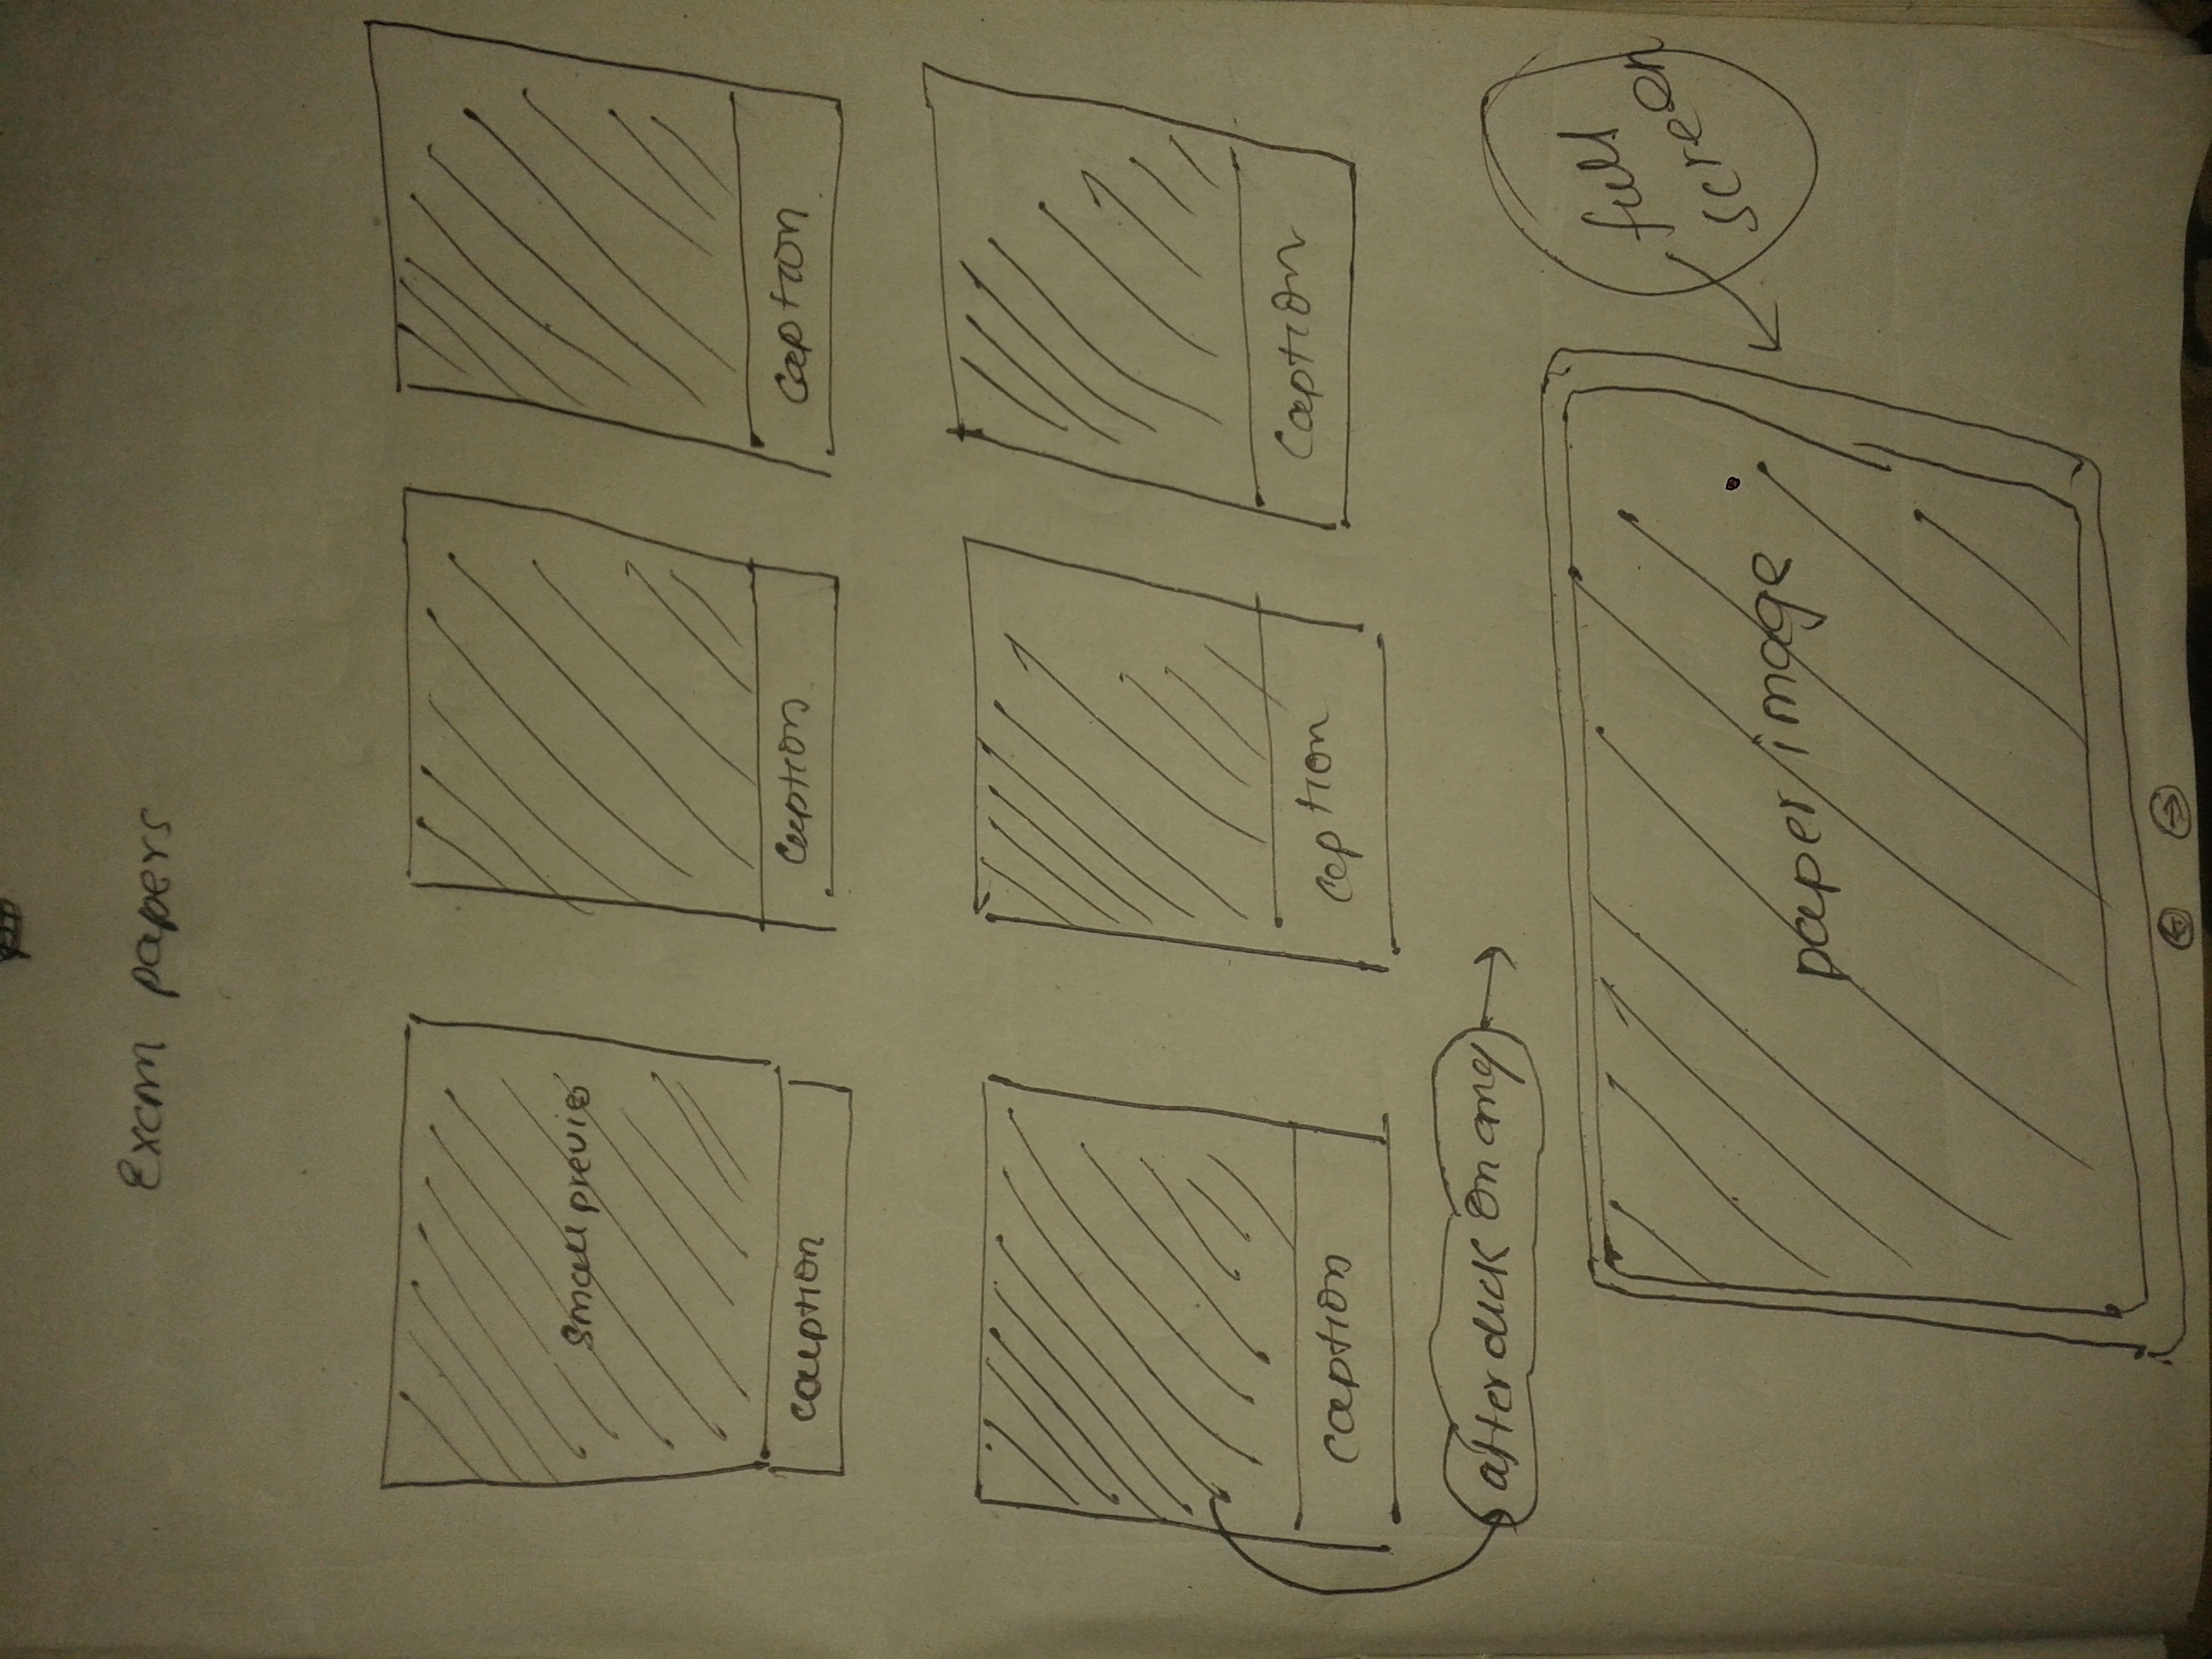 Exam papers
small previe
caption
caption
caption
caption
caption
caption
after click on any
full
screen
paper image